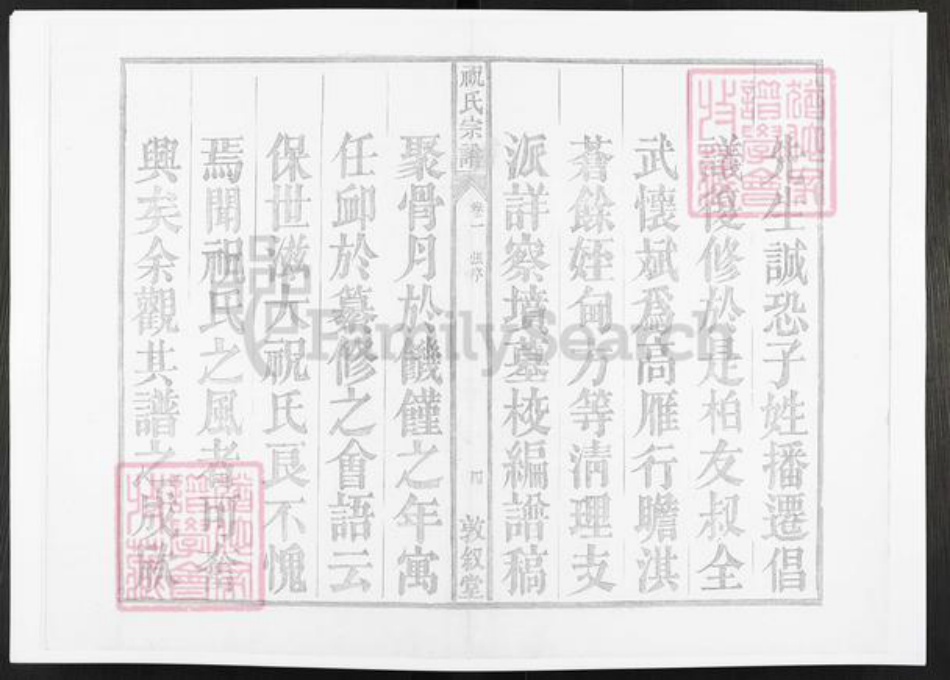 先生誠恐子姓播遷倡
議復修於是柏友叔全
武懷斌為高雁行瞻淇
蒼餘姪甸方等清理支
派詳察墳墓校編譜稿
祝氏宗譜 卷一 張序 四 敦敘堂
聚骨月於饑饉之年寓
任卹於纂修之會語云
保世滋大祝氏良不愧
焉聞祝氏之風者可奮
興矣余觀其譜之成欣
FamilySearch